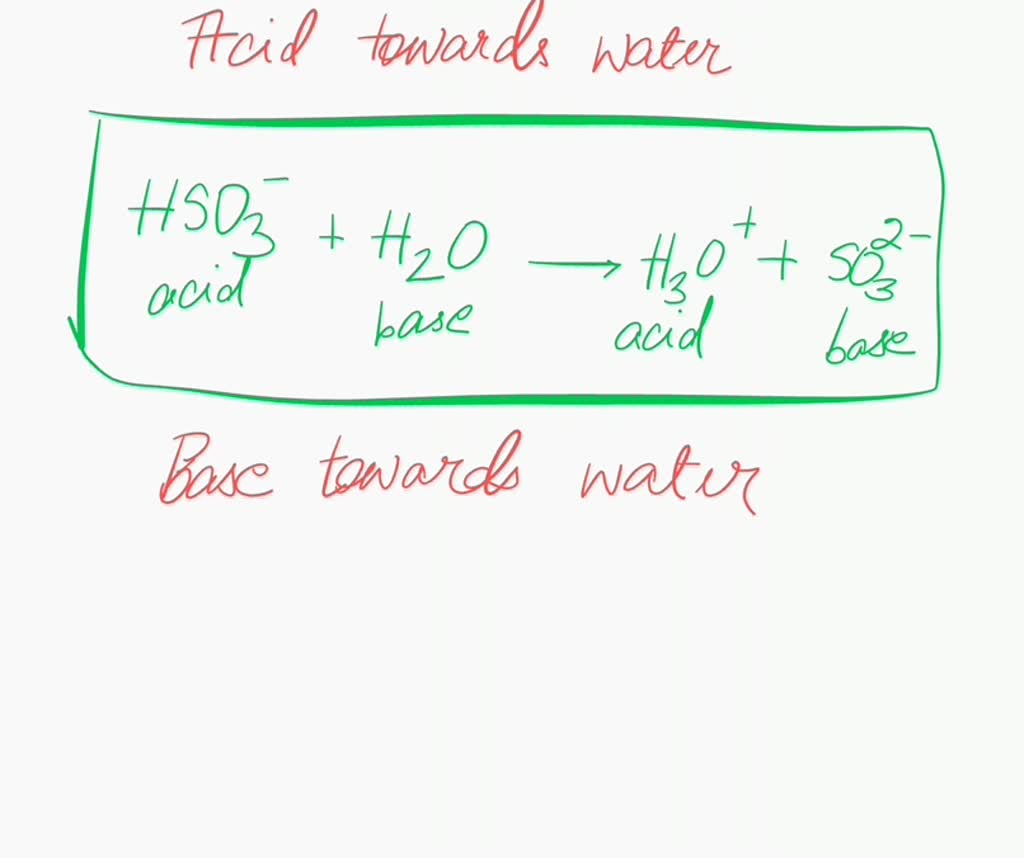 Acid towards water
HSO₃⁻ + H₂O ⟶ H₃O⁺ + SO₃²⁻
acid base acid base
Base towards water